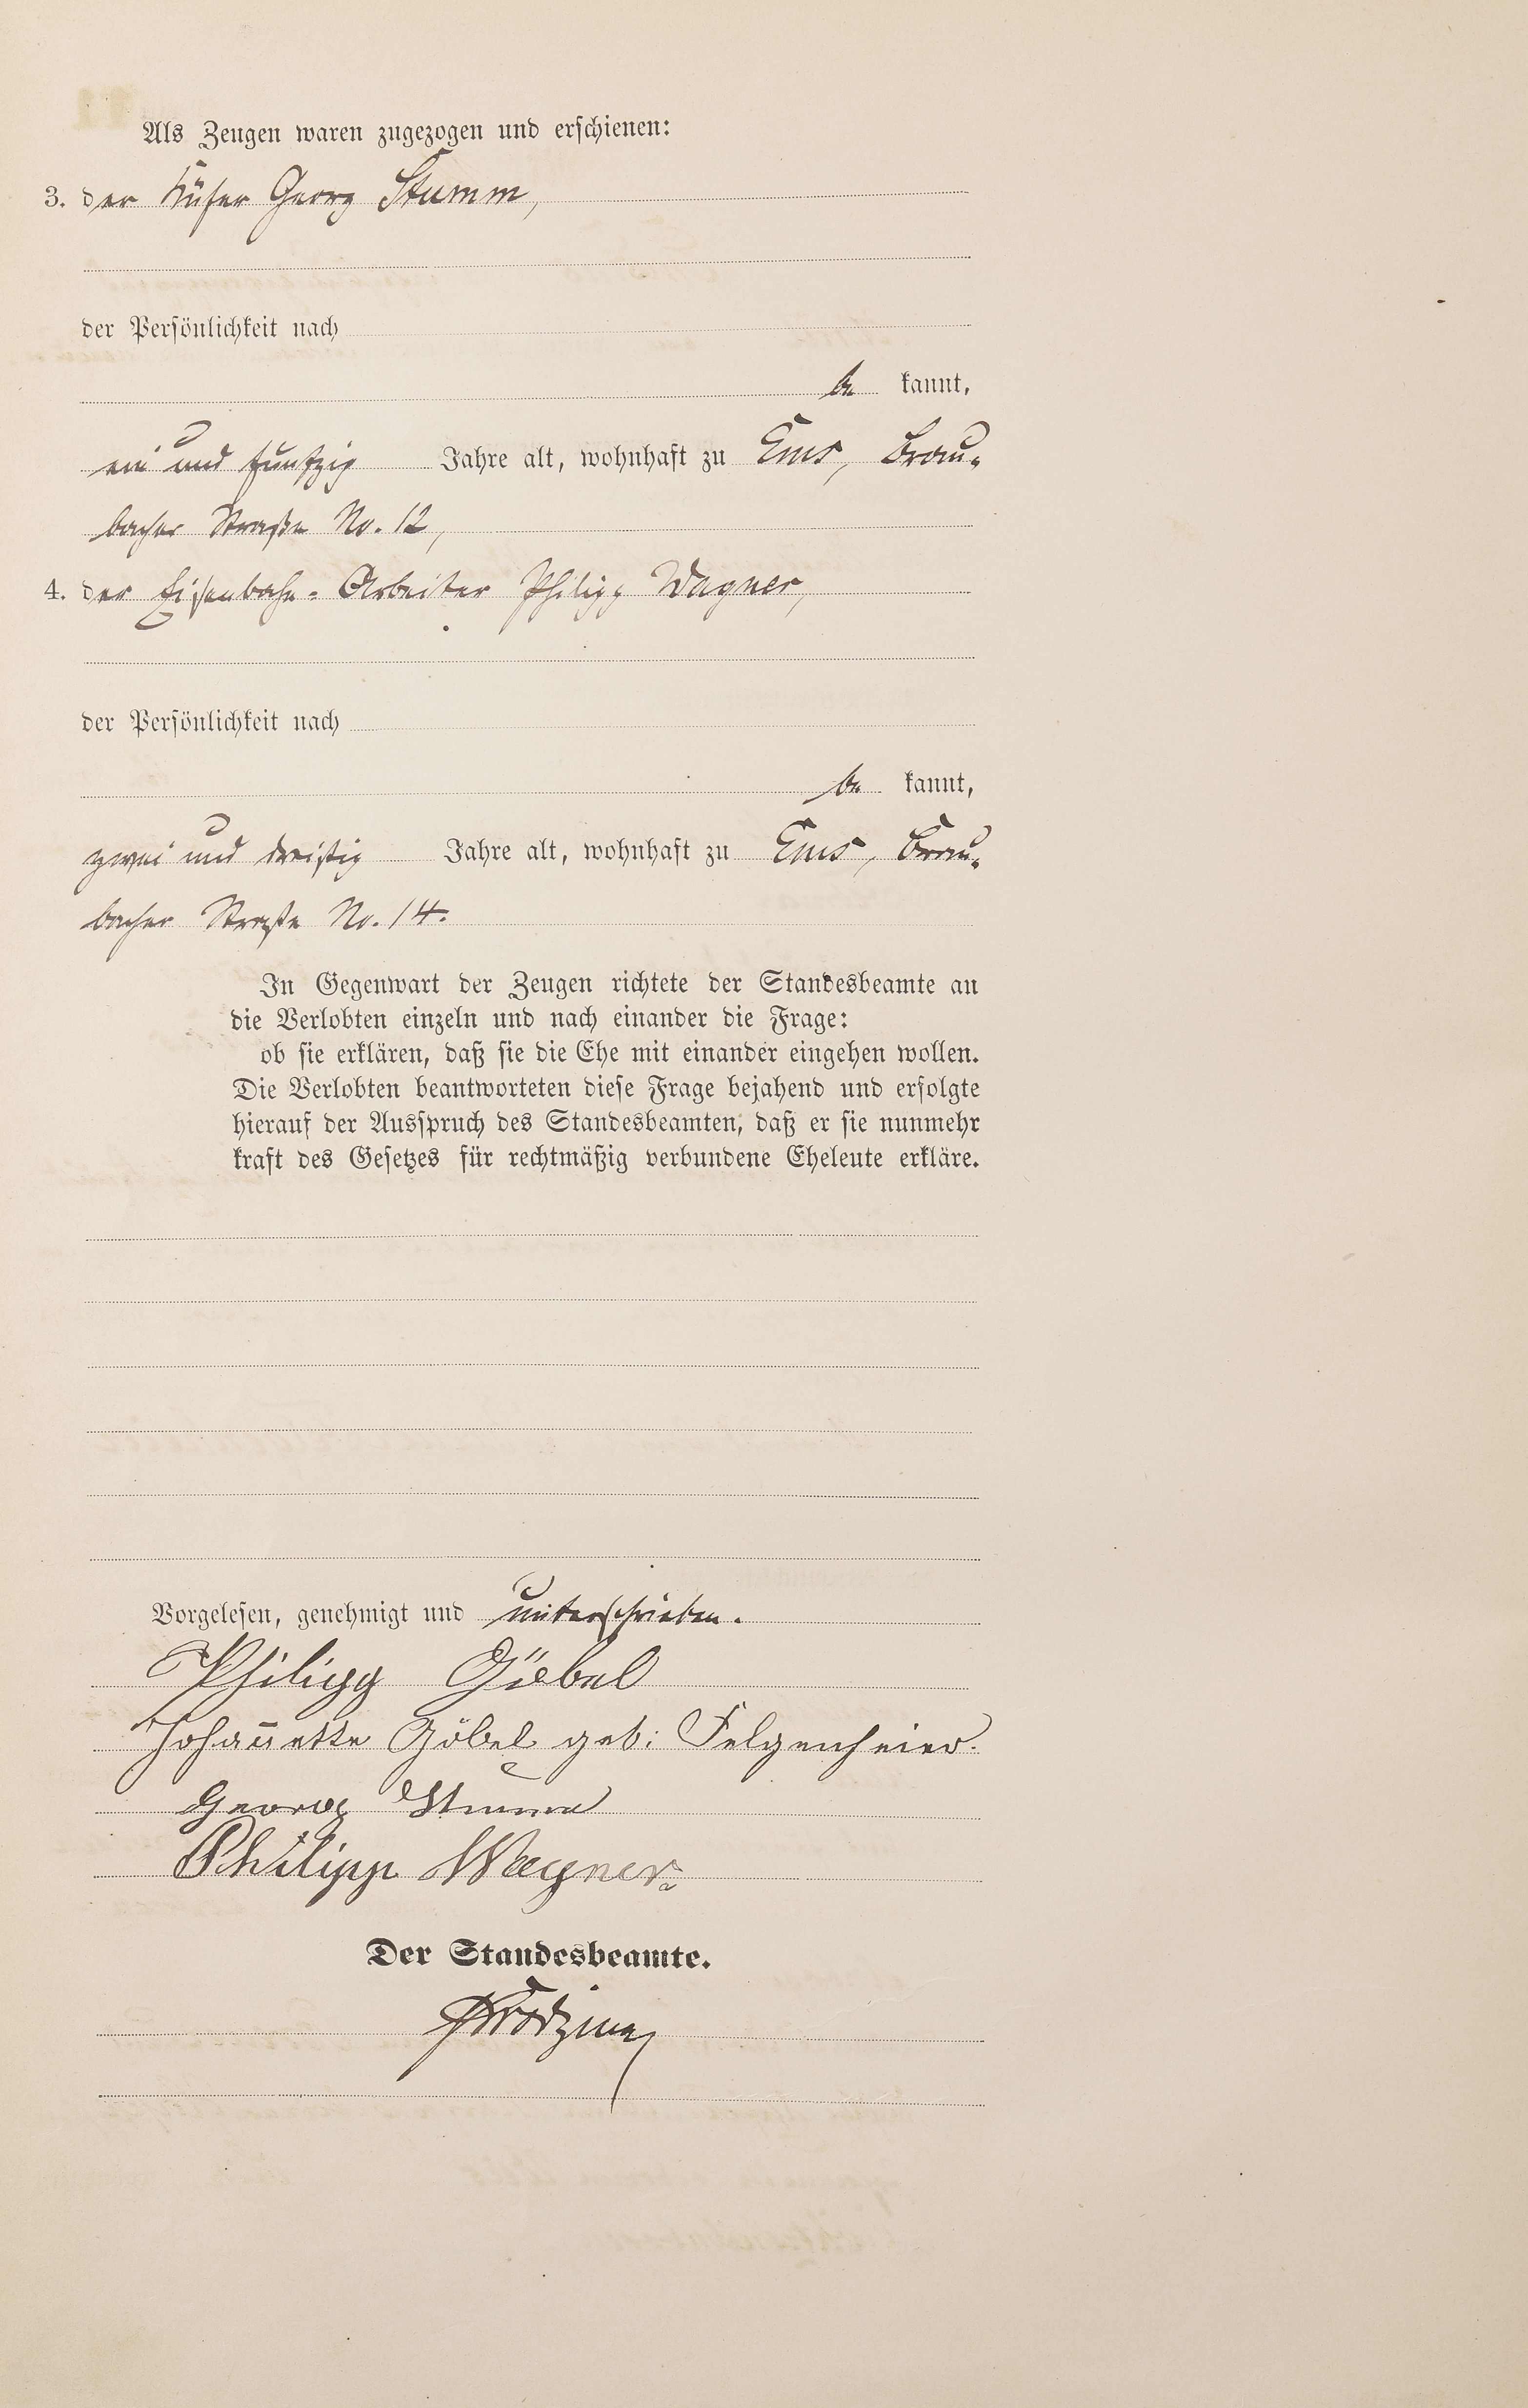 Als Zeugen waren zugezogen und erschienen:
3. der Küfer Georg Stumm,
der Persönlichkeit nach
be kannt,
ein und funfzig Jahre alt, wohnhaft zu Ems, Brau-
bacher Straße No. 12,
4. der Eisenbahn-Arbeiter Philipp Wagner,
der Persönlichkeit nach
be kannt,
zwei und dreißig Jahre alt, wohnhaft zu Ems, Brau-
bacher Straße No. 14.
In Gegenwart der Zeugen richtete der Standesbeamte an
die Verlobten einzeln und nach einander die Frage:
ob sie erklären, daß sie die Ehe mit einander eingehen wollen.
Die Verlobten beantworteten diese Frage bejahend und erfolgte
hierauf der Ausspruch des Standesbeamten, daß er sie nunmehr
kraft des Gesetzes für rechtmäßig verbundene Eheleute erkläre.
Vorgelesen, genehmigt und unterschrieben.
Philipp Göbel
Johannette Göbel geb: Felgenheier.
Georg Stumm
Philipp Wagner.
Der Standesbeamte.